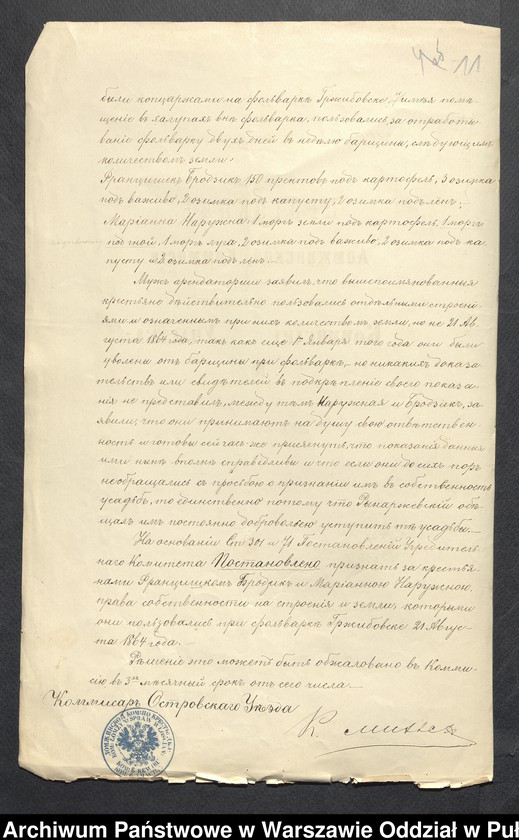 11
были концаржами на фольваркѣ Гржибовске, имѣя помѣ-
щеніе въ халупахъ внѣ фольварка, пользовались, за отработы-
ваніе фольварку двухъ дней въ недѣлю барщины, слѣдующимъ
количествомъ земли:
Францишекъ Бродзикъ 150 прентовъ подъ картофель, 3 озимка
подъ важиво, 2 озимка подъ капусту, 2 озимка подъ лёнъ.
Маріанна Наружна: 1 моргъ земли подъ картофель, 1 моргъ
подъ гной, 1 моргъ луга, 2 озимка подъ важиво, 2 озимка подъ ка-
пусту и 2 озимка подъ лёнъ.
Мужъ арендаторши заявилъ, что вышепоименованные
крестьяне дѣйствительно пользовались отдѣльными строені-
ями и означеннымъ при нихъ количествомъ земли, но не 21 Ав-
густа 1864 года, такъ какъ еще 1го Января того года они были
уволены отъ барщины при фольваркѣ, но никакихъ доказа-
тельствъ или свидѣтелей въ подкрѣпленіе своего показа-
нія не представилъ, между тѣмъ Наружная и Бродзикъ, за-
явили, что они принимаютъ на душу свою отвѣтствен-
ность и готовы сейчасъ-же присягнуть, что показанія данныя
ими нынѣ вполнѣ справедливы и что если они до сихъ поръ
не обращались съ просьбою о признаніи имъ въ собственность
усадьбъ, то единственно потому что Рынаржевскій обѣ-
щалъ имъ постоянно добровольно уступить тѣ усадьбы.
На основаніи Ст 301 и 71 Постановленій Учредитель-
наго Комитета Постановлено признать за крестья-
нами Францишкомъ Бродзикъ и Маріанною Наружною,
права собственности на строенія и земли, которыми
они пользовались при фольваркѣ Гржибовске 21 Авгус-
та 1864 года.
Рѣшеніе это можетъ быть обжаловано въ Коммис-
сію въ 3хъ мѣсячный срокъ отъ сего числа.
Коммисаръ Островскаго Уѣзда
Archiwum Państwowe w Warszawie Oddział w Puł